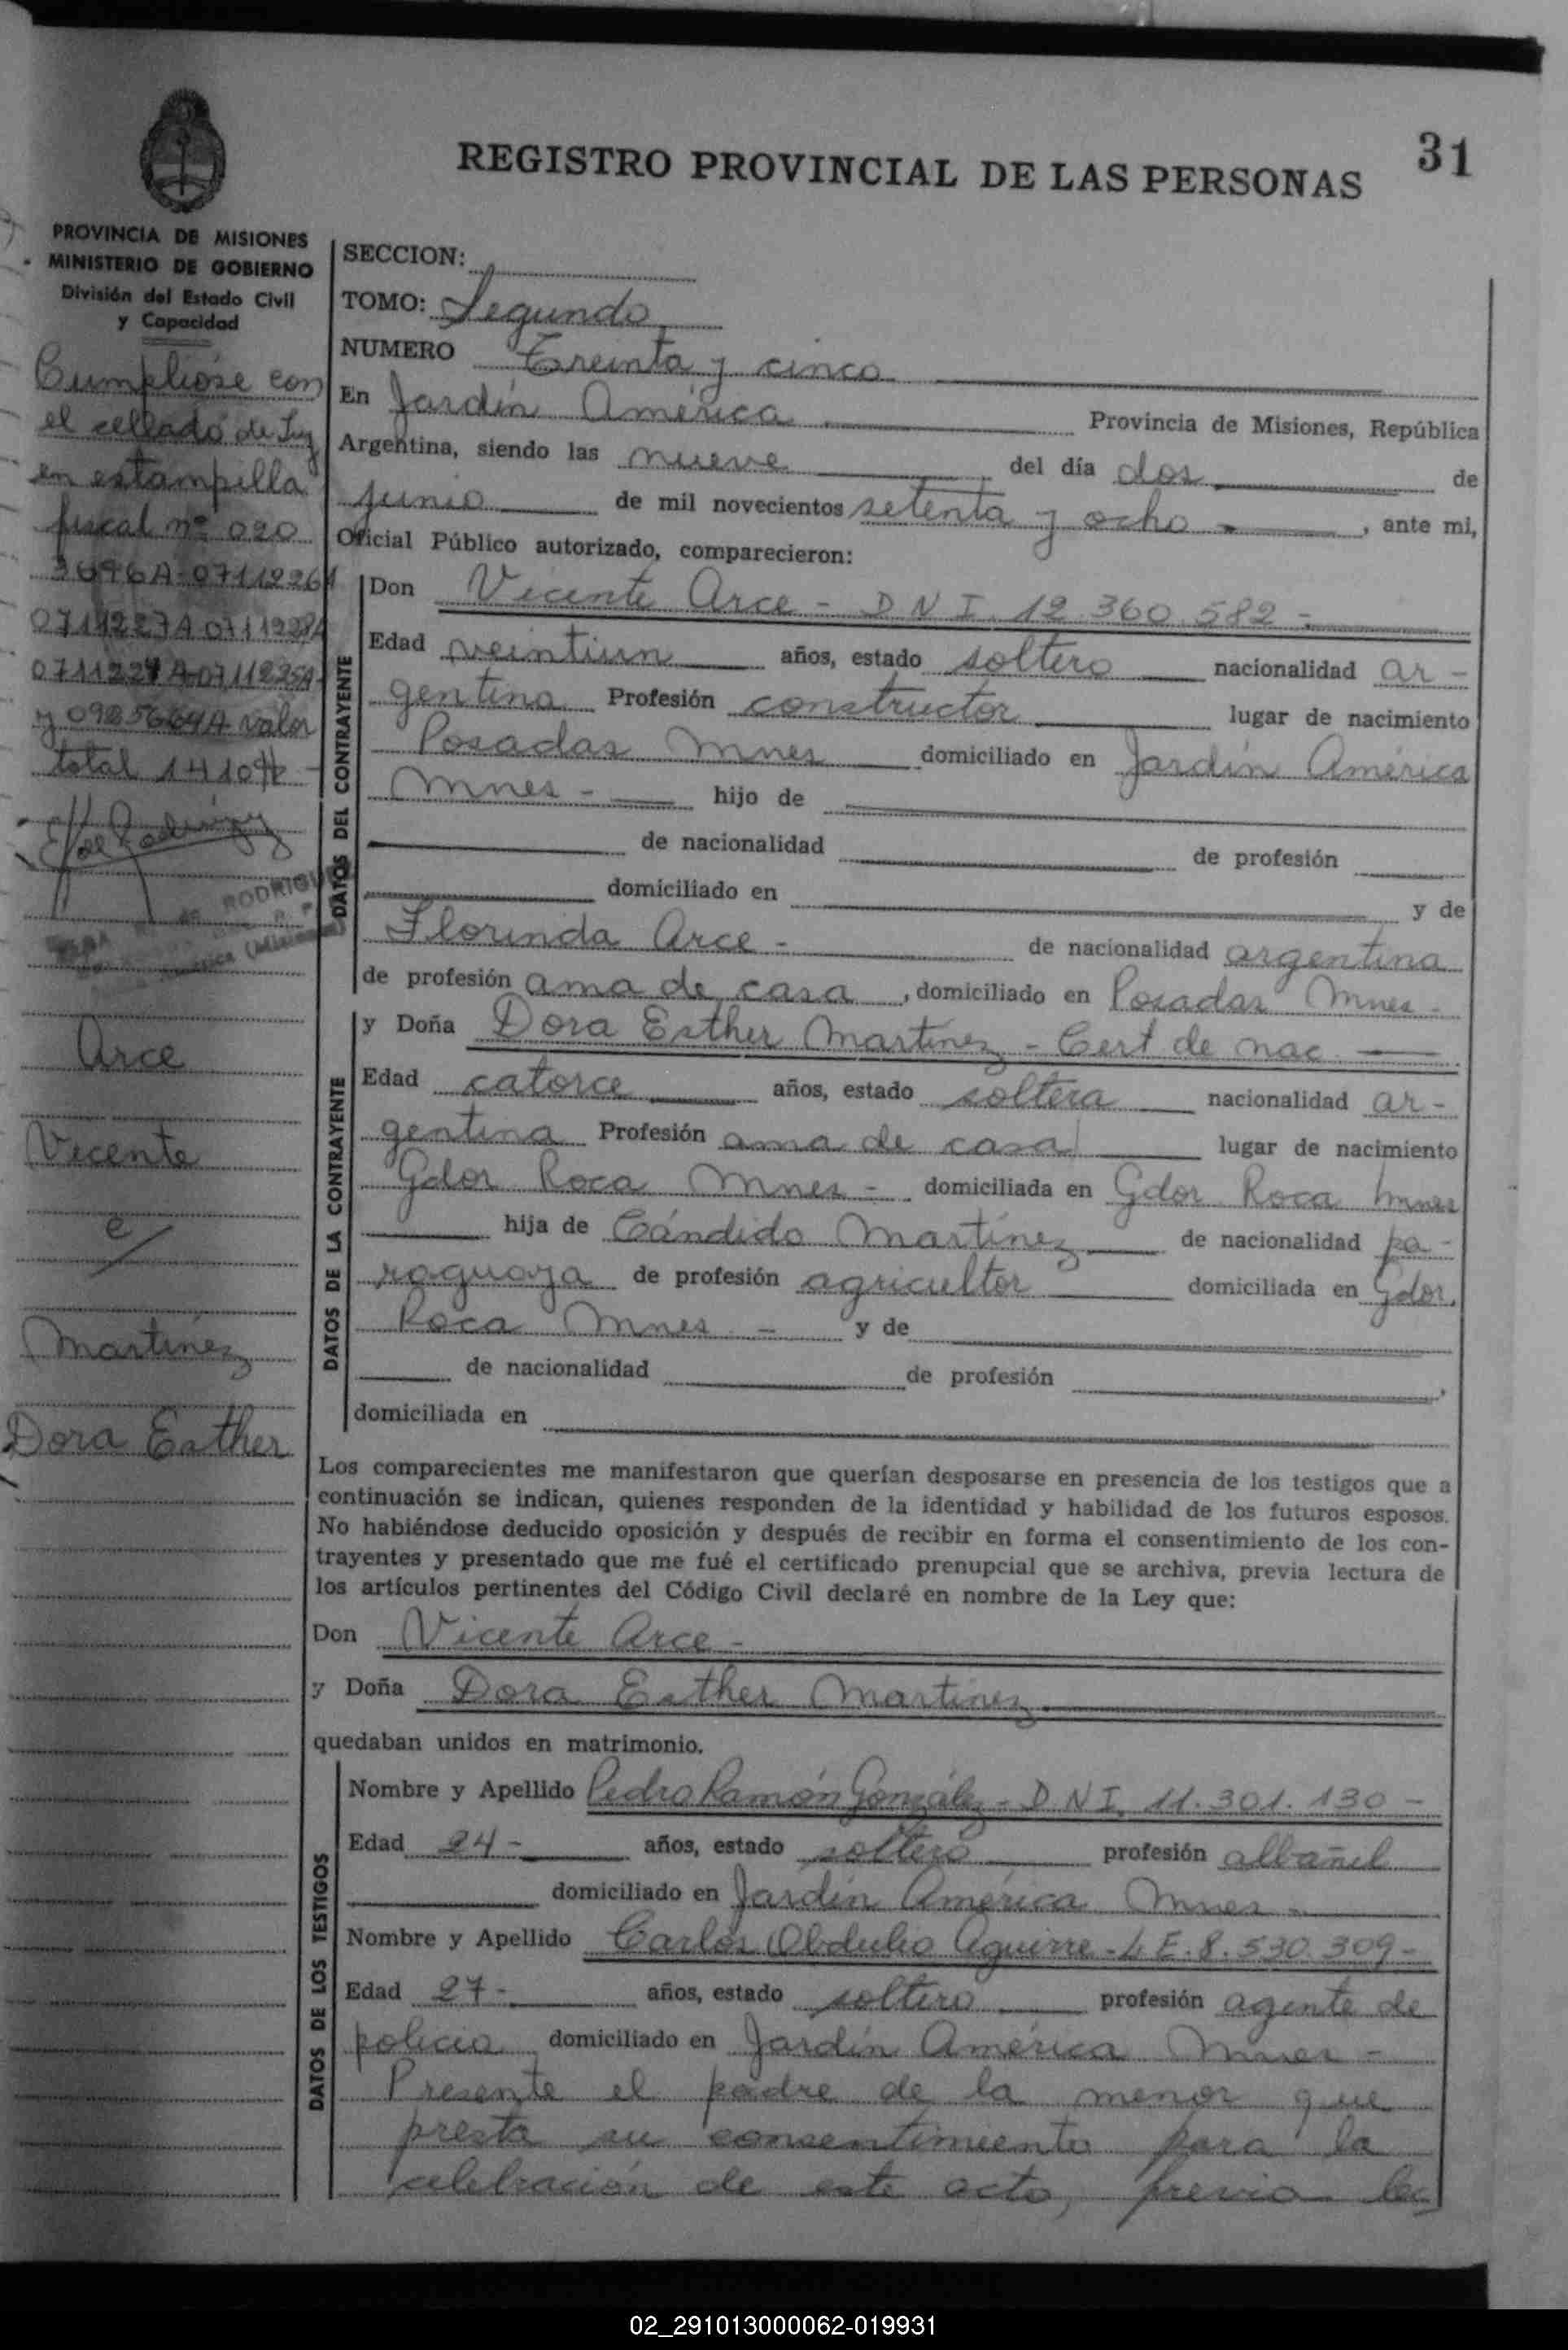 31
REGISTRO PROVINCIAL DE LAS PERSONAS
PROVINCIA DE MISIONES
MINISTERIO DE GOBIERNO
División del Estado Civil
y Capacidad
Cumplióse con
el cellado de Ley
en estampilla
fiscal nº 020
0711227A 0711228A
y 0985664A valor
total 1410
RODRIGU
Arce
Vicente
e/
Martínez
Dora Esther
SECCION:
TOMO: Segundo
NUMERO Treinta y cinco
En Jardín América Provincia de Misiones, República
Argentina, siendo las nueve del día dos de
junio de mil novecientos setenta y ocho - , ante mi,
Oficial Público autorizado, comparecieron:
DATOS DEL CONTRAYENTE
Don Vicente Arce - D N I. 12.360.582 -
Edad veintiun años, estado soltero nacionalidad ar-
gentina Profesión constructor lugar de nacimiento
Posadas Mnes domiciliado en Jardín América
Mnes - hijo de
de nacionalidad de profesión
domiciliado en y de
Florinda Arce - de nacionalidad argentina
de profesión ama de casa , domiciliado en Posadas Mnes -
DATOS DE LA CONTRAYENTE
y Doña Dora Esther Martínez - Cert de nac.
Edad catorce años, estado soltera nacionalidad ar-
gentina Profesión ama de casa lugar de nacimiento
Gdor Roca Mnes - domiciliada en Gdor Roca Mnes
hija de Cándido Martínez de nacionalidad pa-
raguaya de profesión agricultor domiciliada en Gdor.
Roca Mnes - y de
de nacionalidad de profesión ,
domiciliada en
Los comparecientes me manifestaron que querían desposarse en presencia de los testigos que a
continuación se indican, quienes responden de la identidad y habilidad de los futuros esposos.
No habiéndose deducido oposición y después de recibir en forma el consentimiento de los con-
trayentes y presentado que me fué el certificado prenupcial que se archiva, previa lectura de
los artículos pertinentes del Código Civil declaré en nombre de la Ley que:
Don Vicente Arce -
y Doña Dora Esther Martínez
quedaban unidos en matrimonio.
DATOS DE LOS TESTIGOS
Nombre y Apellido Pedro Ramón González - D N I. 11.301.130 -
Edad 24 - años, estado soltero profesión albañil
domiciliado en Jardín América Mnes -
Nombre y Apellido Carlos Obdulio Aguirre - L E. 8.530.309 -
Edad 27 - años, estado soltero profesión agente de
policia domiciliado en Jardín América Mnes -
Presente el padre de la menor que
presta su consentimiento para la
celebración de este acto, previa lec
02_291013000062-019931